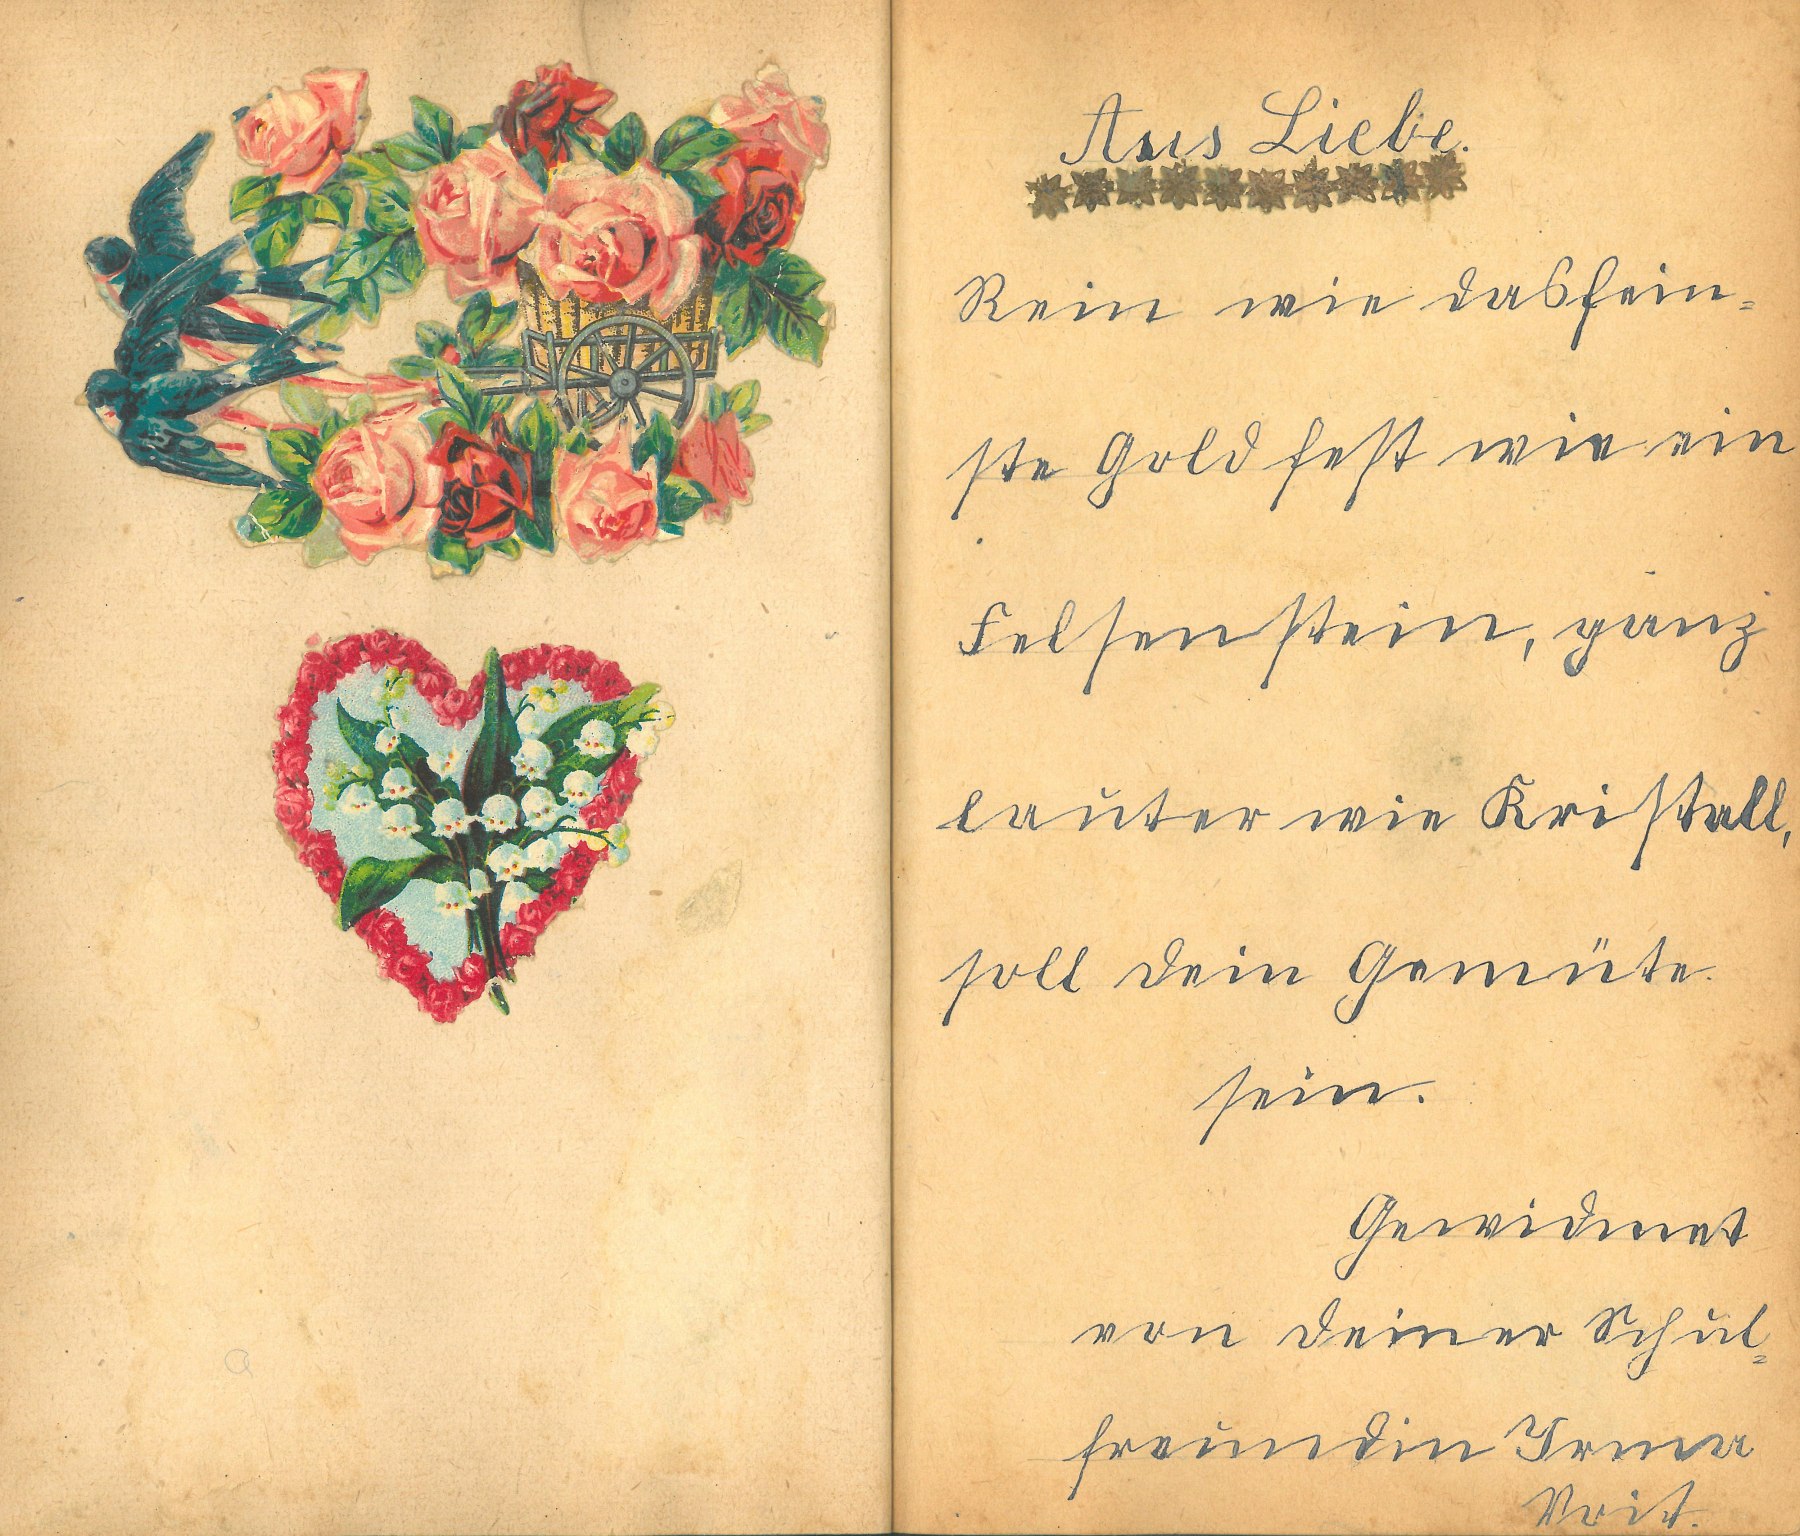 Aus Liebe.
Rein wie das fein-
ste Gold fest wie ein
Felsenstein, ganz
lauter wie Kristall,
soll dein Gemüte
sein.
Gewidmet
von deiner Schul-
freundin Irma
Voit.